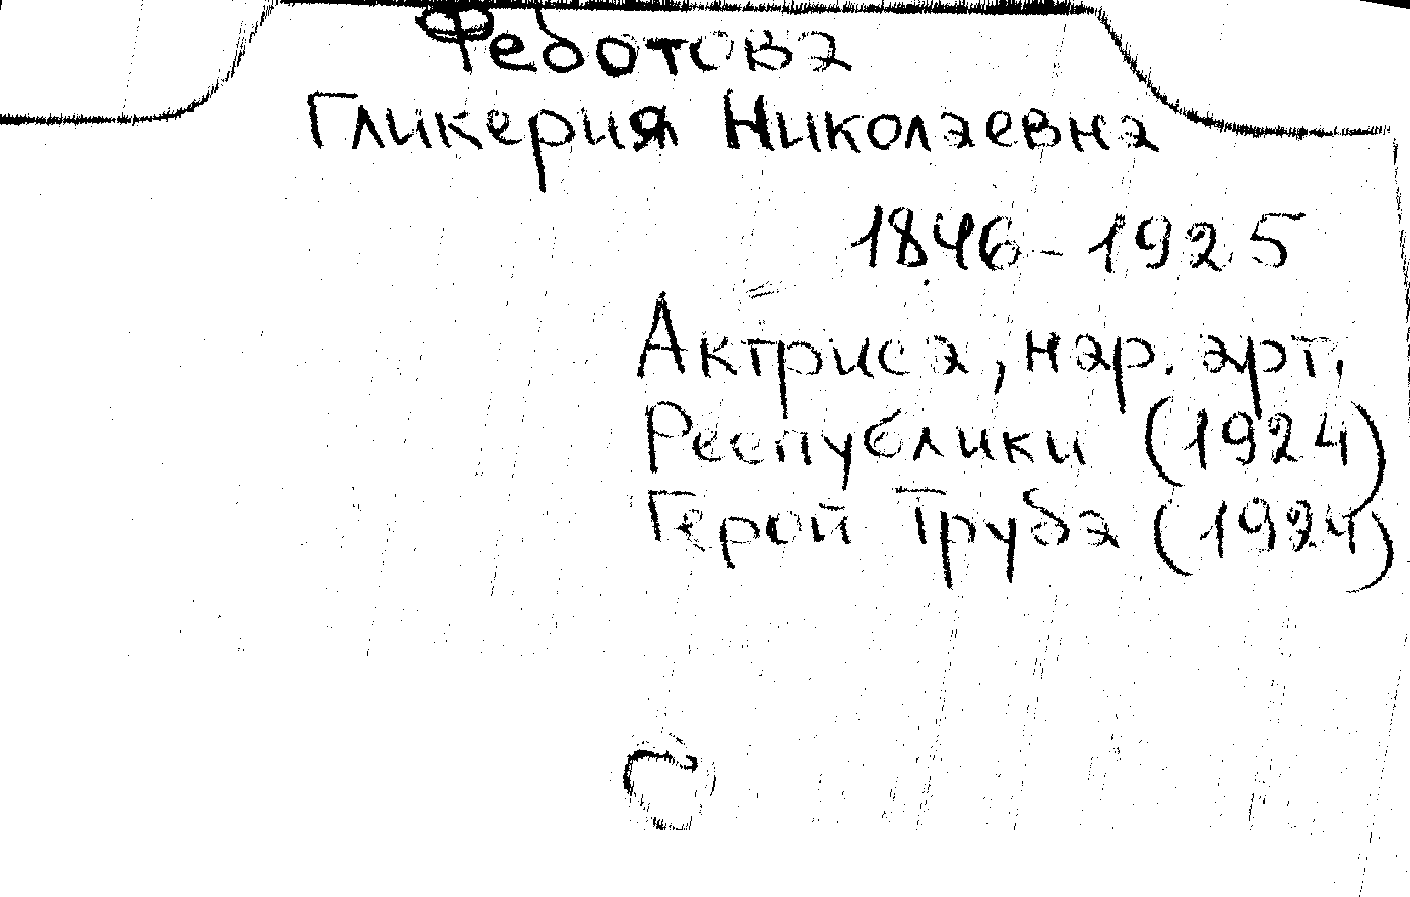 Федотова
Гликерия Николаевна
1846-1925
Актриса, нар. арт.
Республики (1924)
Герой Труда (1924)